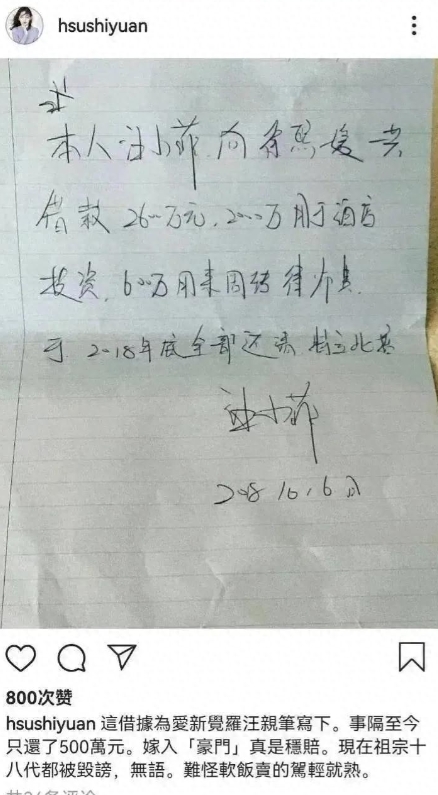 hsushiyuan
本人汪小菲,向徐熙媛共
借款2600万元,2000万用于酒店
投资,600万用来周转
于2018年底全部还清 特立此
汪小菲
2018,10,6日
800次赞
hsushiyuan 這借據為愛新覺羅汪親筆寫下。事隔至今
只還了500萬元。嫁入「豪門」真是穩賠。現在祖宗十
八代都被毀謗，無語。難怪軟飯賣的駕輕就熟。